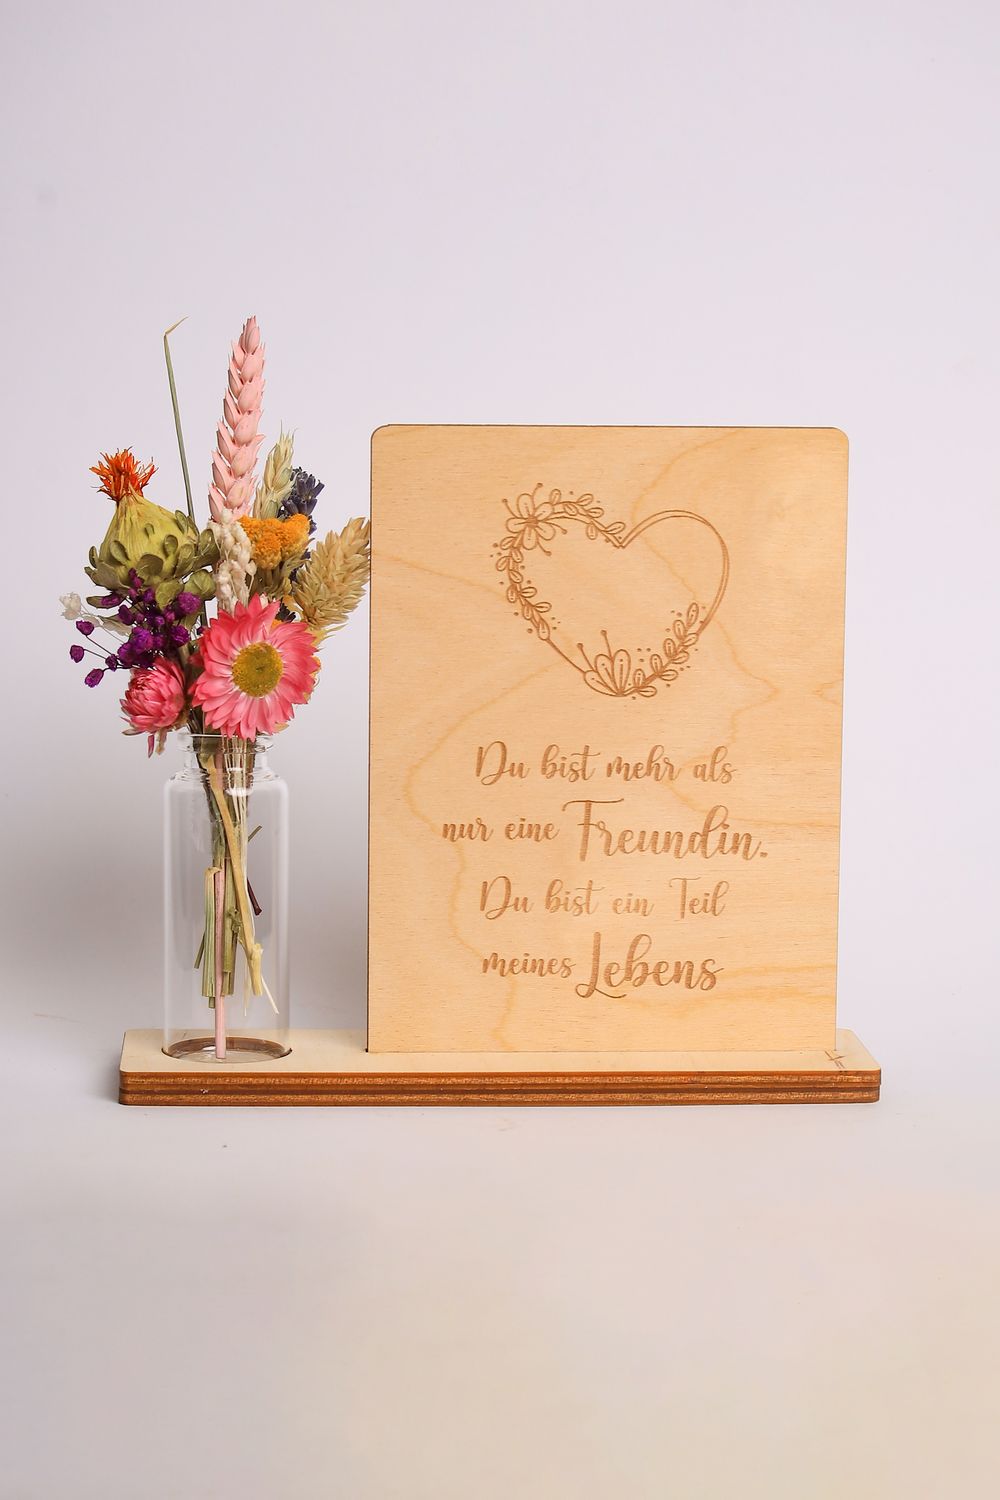 Du bist mehr als
nur eine Freundin.
Du bist ein Teil
meines Lebens